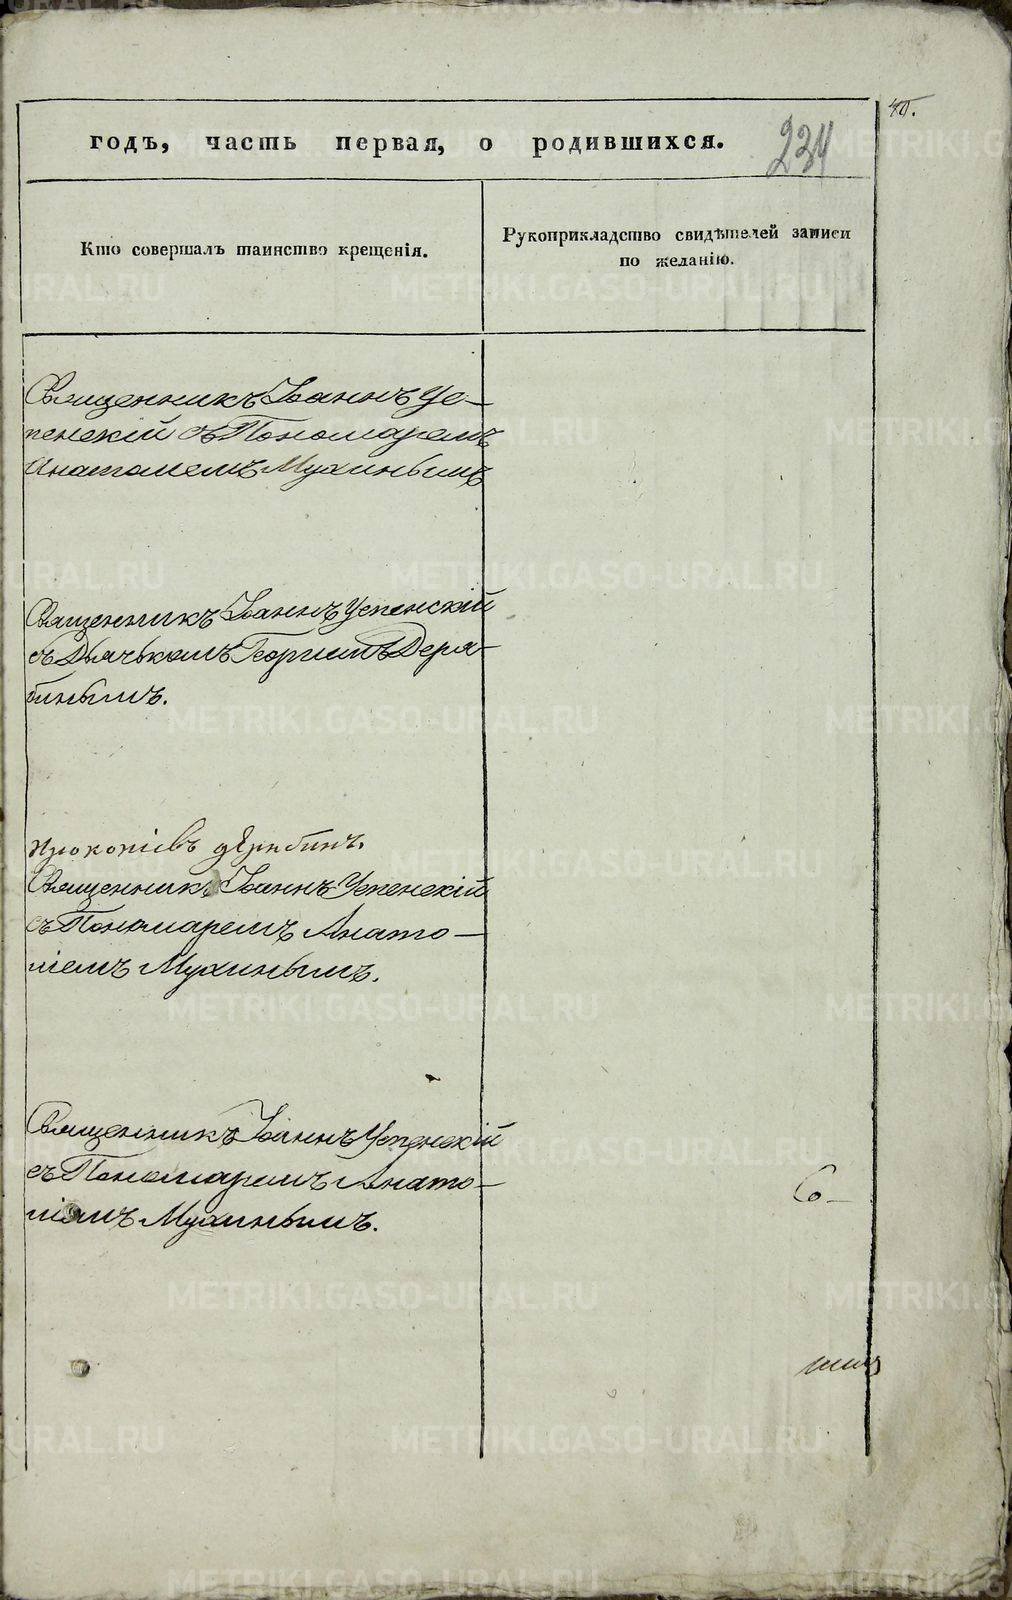 40.
годъ, часть первая, о родившихся. 234
Кто совершалъ таинство крещенія.
Рукоприкладство свидѣтелей записи
по желанію.
Священникъ Іоаннъ Ус-
пенскій съ Пономаремъ
Анатолiемъ Мухинымъ
Священникъ Іоаннъ Успенскій
съ Дьячкомъ Георгiемъ Деря-
бинымъ.
Священникъ Іоаннъ Успенскій
съ Пономаремъ Анато-
ліемъ Мухинымъ.
Священникъ Іоаннъ Успенскій
съ Пономаремъ Анато-
ліемъ Мухинымъ.
METRIKI.GASO-URAL.RU